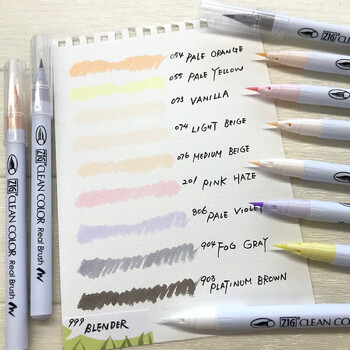 054 PALE ORANGE
055 PALE YELLOW
073 VANILLA
074 LIGHT BEIGE
076 MEDIUM BEIGE
201 PINK HAZE
806 PALE VIOLET
904 FOG GRAY
903 PLATINUM BROWN
999 BLENDER
ZIG CLEAN COLOR Real Brush
ZIG CLEAN COLOR Real Brush
ZIG CLEAN
ZIG